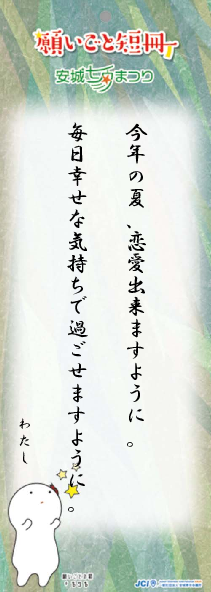 願いごと短冊
安城七夕まつり
今年の夏、恋愛出来ますように。
毎日幸せな気持ちで過ごせますように。
わたし
JCI